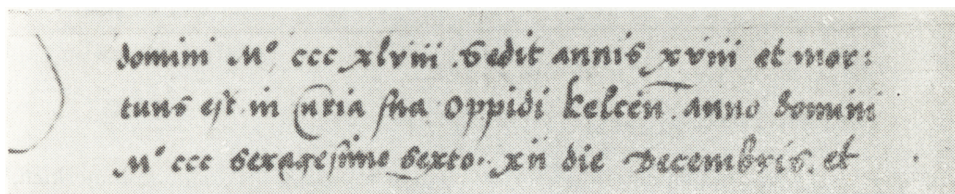 domini Mº ccc xlviii. Sedit annis xviii et mor:
tuus est in Curia sua Oppidi kelcen̄. anno domini
Mº ccc sexagesimo sexto. xii die Decembris. et